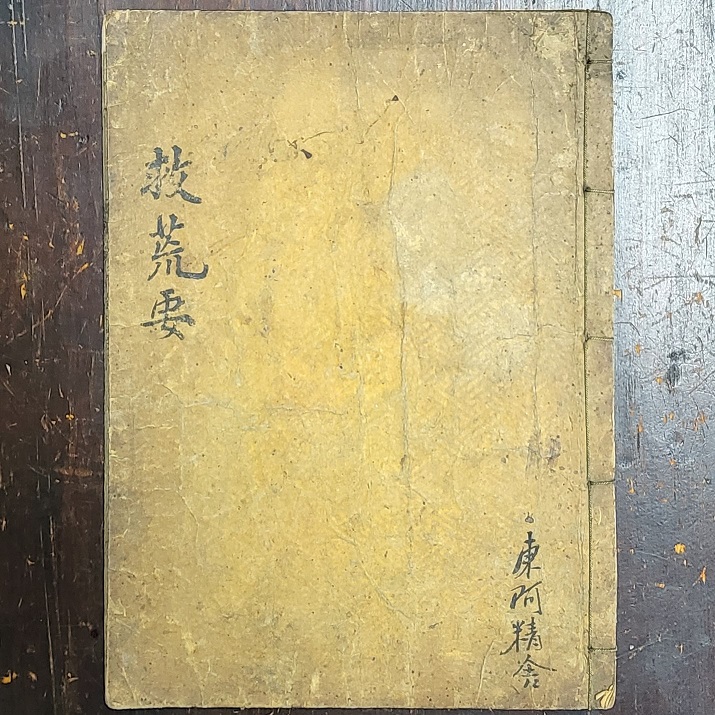 救荒要
東阿精舍